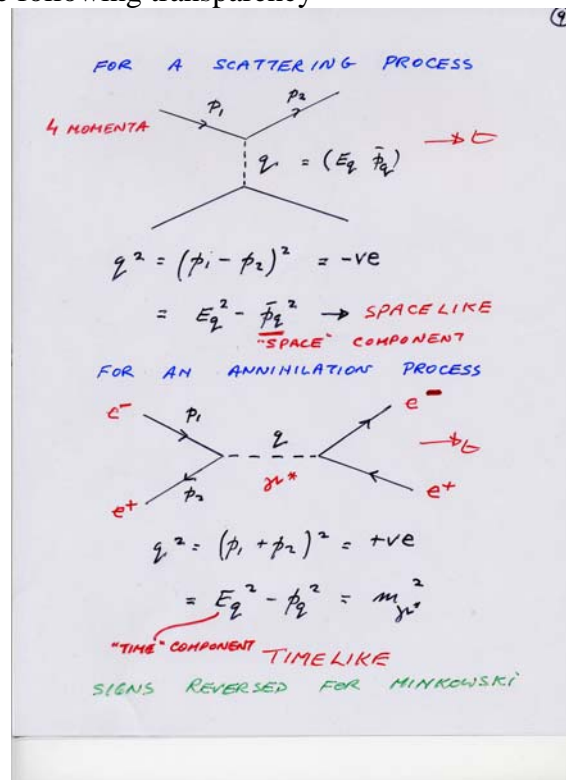 e following transparency
9
FOR A SCATTERING PROCESS
p₁ p₂
4 MOMENTA
q = (E_q p̄_q) → t
q² = (p₁ - p₂)² = -ve
= E_q² - p̄_q² → SPACELIKE
"SPACE" COMPONENT
FOR AN ANNIHILATION PROCESS
e⁻ p₁ q e⁻
→ t
γ*
e⁺ p₂ e⁺
q² = (p₁ + p₂)² = +ve
= E_q² - p_q² = m_γ*²
"TIME" COMPONENT TIMELIKE
SIGNS REVERSED FOR MINKOWSKI